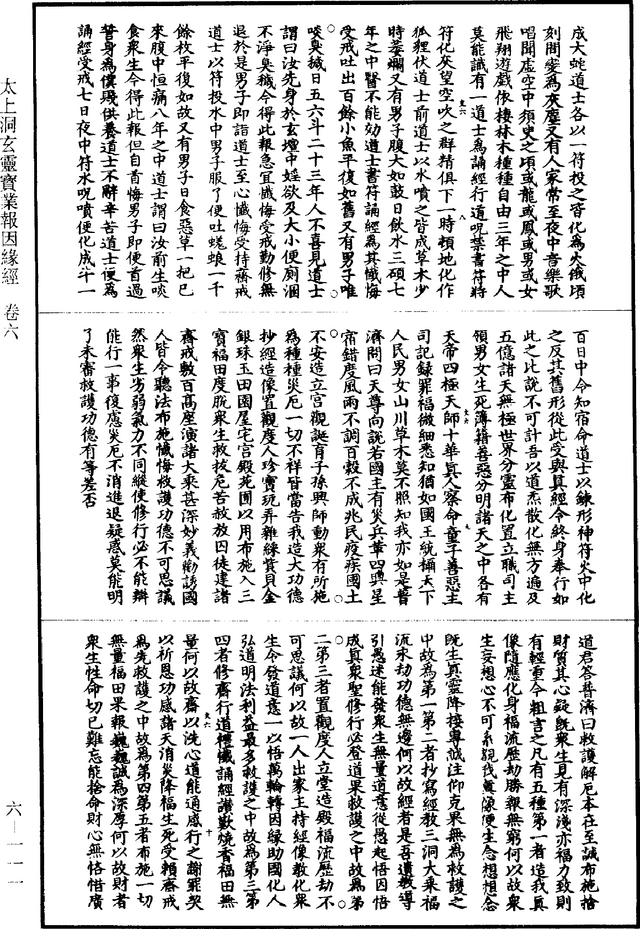 成大蛇道士各以一符投之皆化為火俄頃
刻間變為灰塵又有人家常至夜中音樂歌
唱聞虛空中須臾之頃或龍或鳳或男或女
飛翔遊戲依棲林木種種自由三年之中人
莫能識有一道士為誦經行道呪葉書符將
符化灰望空吹之群精俱下一時頓地化作
狐狸伏道士前道士以水噴之皆成草木少
時萎爛又有男子腹大如鼓日飲水三碩七
年之中醫不能効道士書符誦經為其懺悔
受戒吐出百餘小魚平復如舊又有男子唯
啖臭穢日五六斗二十三年人不喜見道士
謂曰汝先身於玄壇中婬欲及大小便廁溷
不淨臭穢令得此報急宜懺悔受戒勤修無
退於是男子即詣道士至心懺悔受持齋戒
道士以符投水中男子服了便吐蜣蜋一千
餘枚平復如故又有男子日食惡草一把已
來腹中恒痛八年之中道士謂曰汝前生啖
食衆生令得此報但自首悔男子即便首過
誓身為僕隸供養道士不辭辛苦道士便為
誦經受戒七日夜中符水呪噴便化成斗一
太上洞玄靈寶業報因緣經 卷六
百日中令知宿命道士以鍊形神符火中化
之反其舊形從此受與真經令終身奉行如
此之比說不可計吾以道炁散化無方遍及
五億諸天無極世界分靈布化置立職司主
領男女生死簿籍善惡分明諸天之中各有
天帝四極天師十華真人察命童子善惡主
司記錄罪福微細悉知猶如國王統攝天下
人民男女山川草木莫不照知我亦如是普
濟問曰天尊向說若國主有災兵革四興星
宿錯度風雨不調百穀不成兆民疫疾國土
不安造立宮觀誕育子孫興師動衆有所施
為種種災厄一切不祥皆當告我造大功德
抄經造像置觀度人珍寶玩弄雜綵賞貝金
銀珠玉田園屋宅宮殿宅圃以用布施入三
寶福田度脫衆生救拔危苦赦放囚徒建諸
齋戒數百高座演諸大乘甚深妙義勸誘國
人皆令聽法布施懺悔救護功德不可思議
然衆生劣弱氣力不同縱使修行必不能辦
能行一事復慮災厄不消進退疑惑莫能明
了未審救護功德有等差否
道君答普濟曰救護解厄本在至誠布施捨
財質其心疑旣衆生見有深淺亦福力致則
有輕重今粗言之凡有五種第一者造我真
像隨應化身福流歷劫勝報無窮何以故衆
生妄想心不可系覩我真像便生念想想念
旣生真靈降接專誠注仰克果無為救護之
中故為第一第二者抄寫經教三洞大乘福
流永劫功德無邊何以故經者是吾遺教導
引愚迷能發衆生無量道意從愚起悟因悟
成真衆聖修行必登道果救護之中故為第
二第三者置觀度人立堂造殿福流歷劫不
可思議何以故一人出家主持經像教化衆
生令發道意一以悟萬輪轉因緣助國化人
弘道明法利益最多救護之中故為第三第
四者修齋行道禮懺誦經讚歎燒香福田無
量何以故齋以洗心道能通感行之謝罪契
以祈恩功感諸天消災降福生死受賴齋戒
為先救護之中故為第四第五者布施一切
無量福田果報巍巍誠為深厚何以故財者
衆生性命切已難忘能捨命財心無恡惜廣
六－一一一